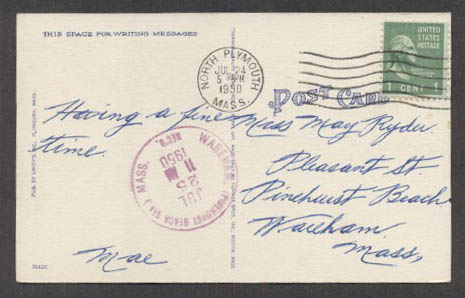 THIS SPACE FOR WRITING MESSAGES
NORTH PLYMOUTH
JUL 24
5 PM
1950
MASS.
UNITED
STATES
POSTAGE
CENT 1
POST CARD
Having a fine
time.
Mae
REC'D.
WAREHAM, (PINEHURST BEACH STA.) MASS.
JUL
25
11 AM
1950
Miss May Ryder
Pleasant St.
Pinehurst Beach
Wareham
Mass.
PLYMOUTH, MASS.
76426